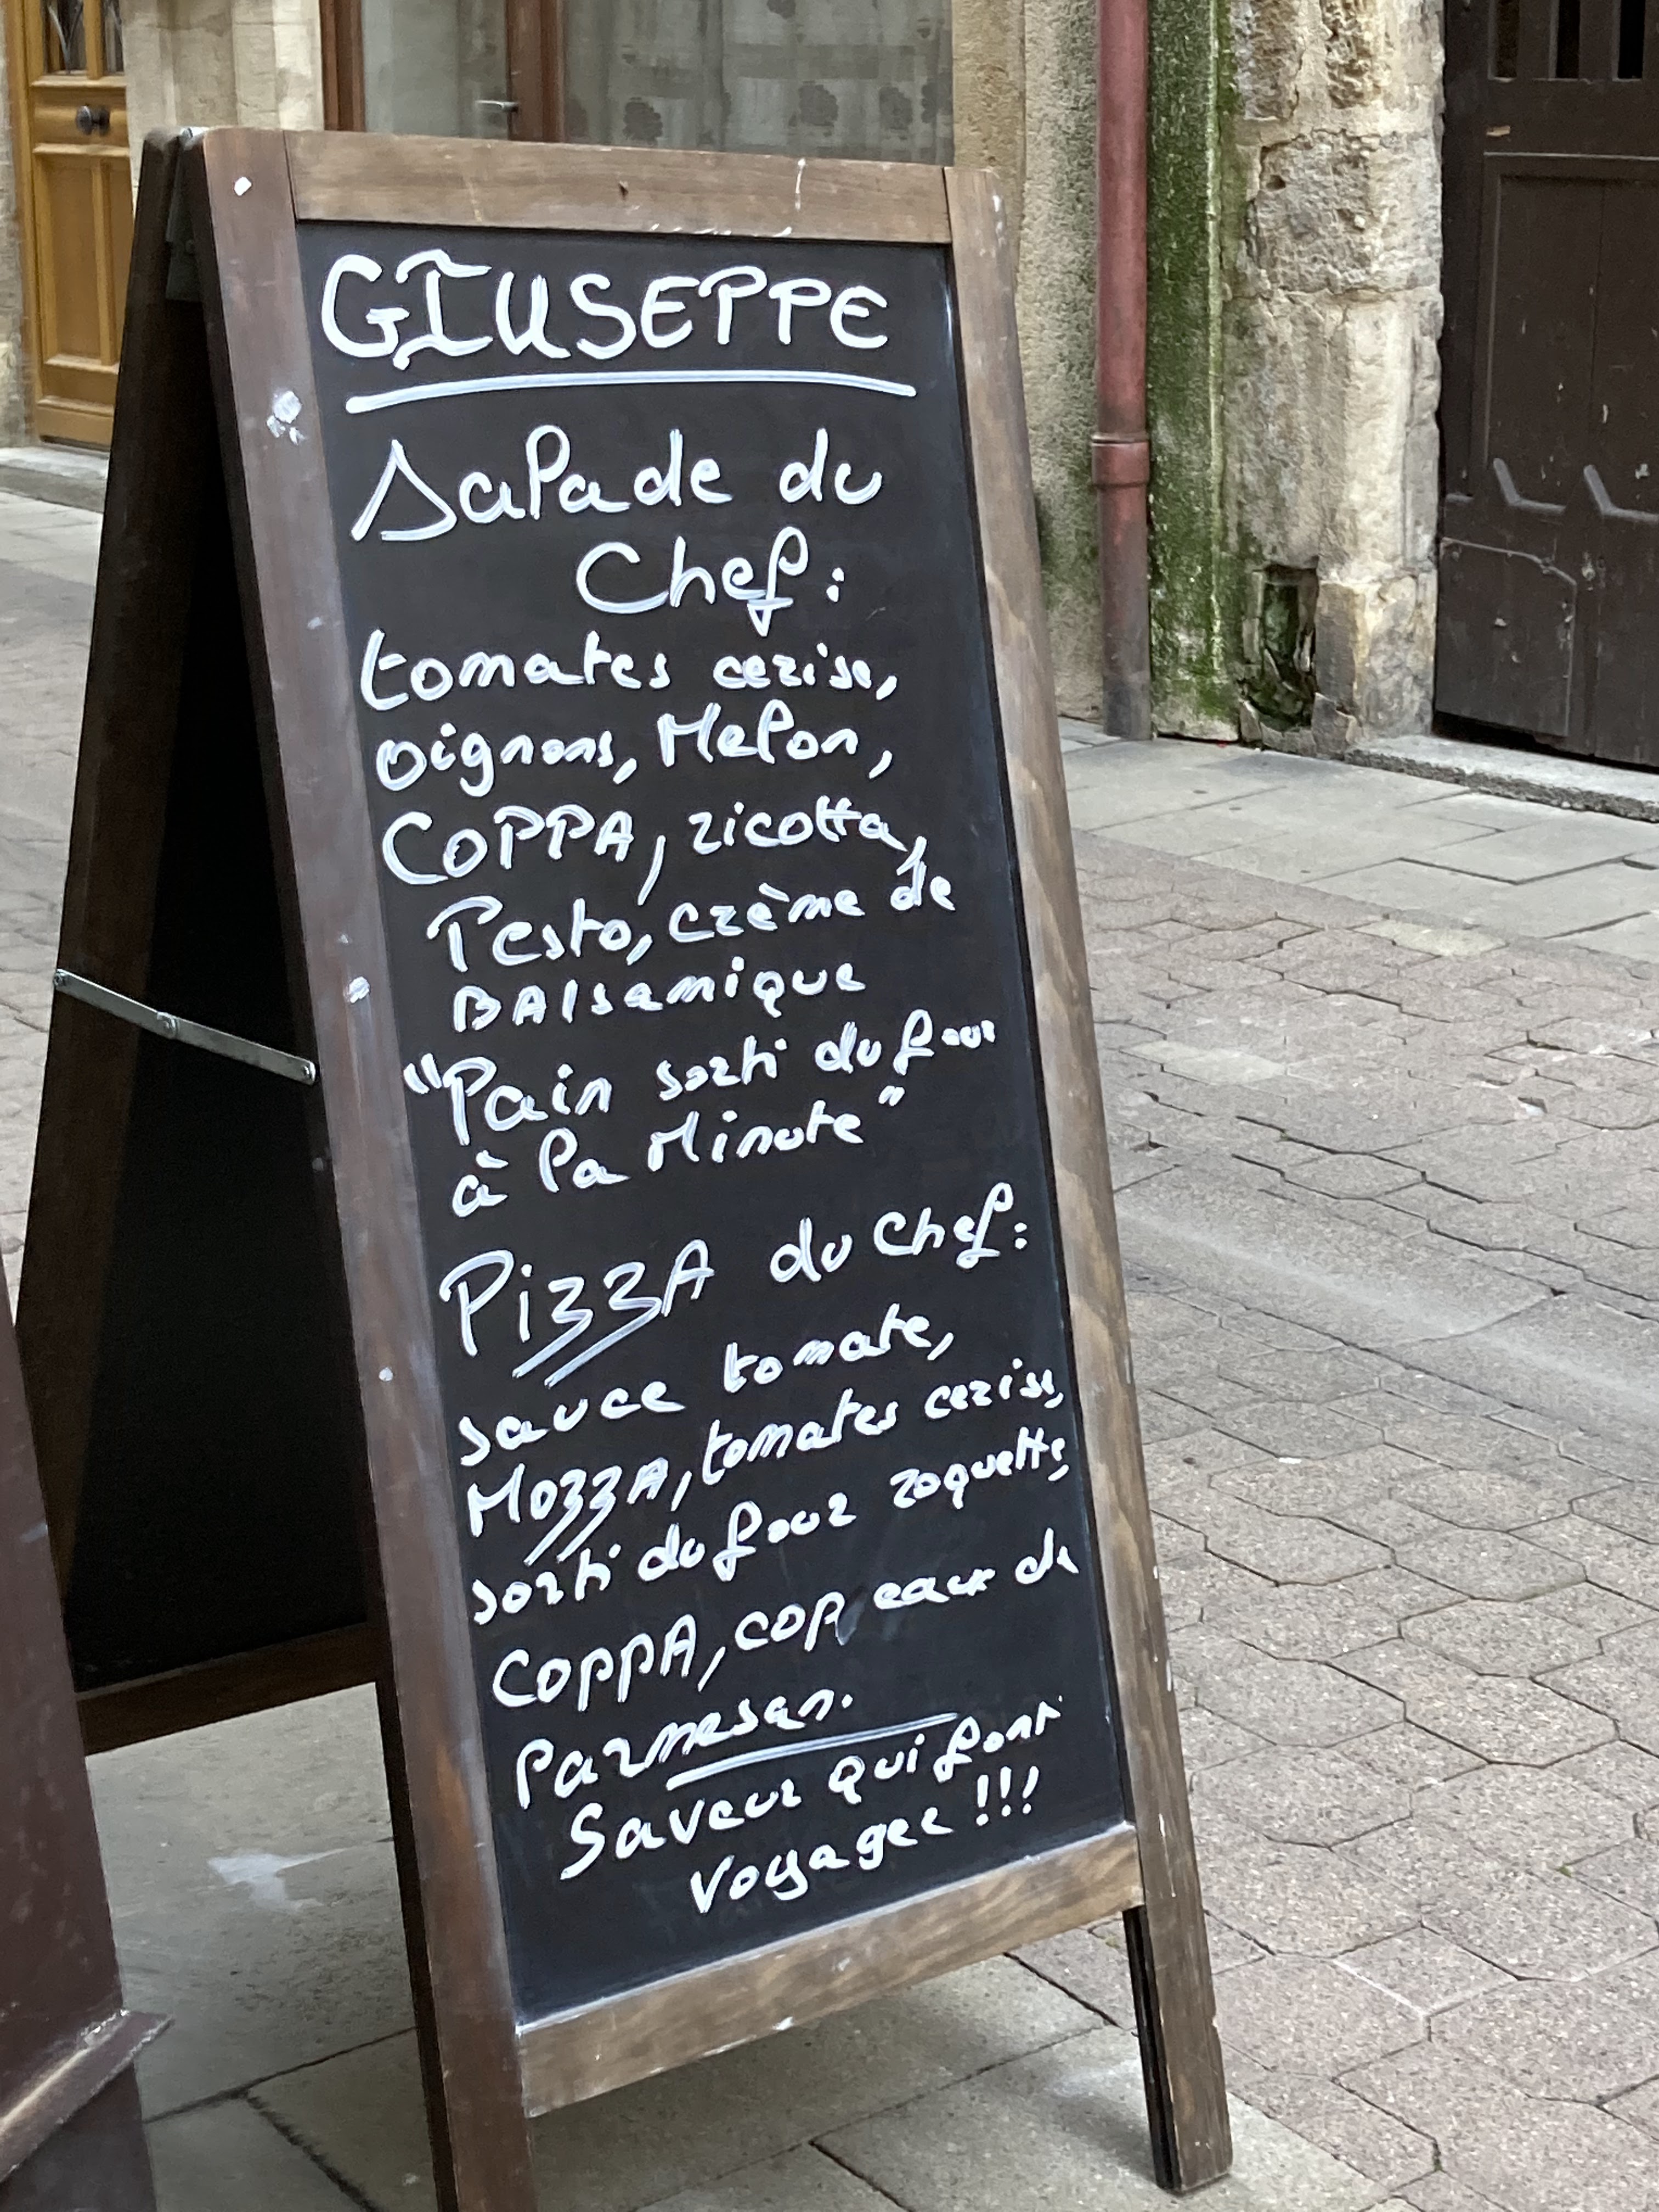 GIUSEPPE
Salade du
Chef :
tomates cerise,
oignons, Melon,
COPPA, ricotta,
Pesto, crème de
BAlsamique
"Pain sorti du four
à la Minute"
PizzA du Chef :
sauce tomate,
MOzzA, tomates cerise,
sorti du four roquette,
COPPA, copeaux de
Parmesan.
Saveur qui font
voyager !!!